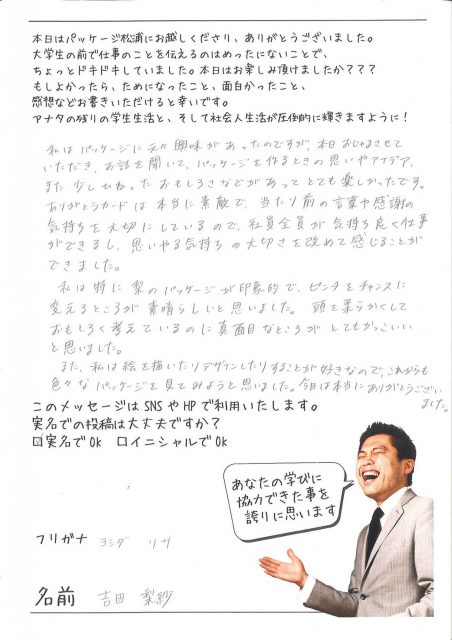 本日はパッケージ松浦にお越しくださり、ありがとうございました。
大学生の前で仕事のことを伝えるのはめったにないことで、
ちょっとドキドキしていました。本日はお楽しみ頂けましたか？？？
もしよかったら、ためになったこと、面白かったこと、
感想などお書きいただけると幸いです。
アナタの残りの学生生活と、そして社会人生活が圧倒的に輝きますように！
私はパッケージに元々興味があったのですが、本日おじゃまさせて
いただき、お話を聞いて、パッケージを作るときの思いやアイデア、
また少しひねったおもしろさなどがあってとても楽しかったです。
ありがとうカードは本当に素敵で、当たり前の言葉や感謝の
気持ちを大切にしているので、社員全員が気持ち良く仕事
ができるし、思いやる気持ちの大切さを改めて感じることが
できました。
私は特に梨のパッケージが印象的で、ピンチをチャンスに
変えるところが素晴らしいと思いました。頭を柔らかくして
おもしろく考えているのに真面目なところがとてもかっこいい
と思いました。
また、私は絵を描いたりデザインしたりすることが好きなので、これからも
色々なパッケージを見てみようと思いました。今日は本当にありがとうござい
ました。
このメッセージはSNSやHPで利用いたします。
実名での投稿は大丈夫ですか？
☑実名でOk ☐イニシャルでOk
あなたの学びに
協力できた事を
誇りに思います
フリガナ ヨシダ リサ
名前 吉田 梨紗